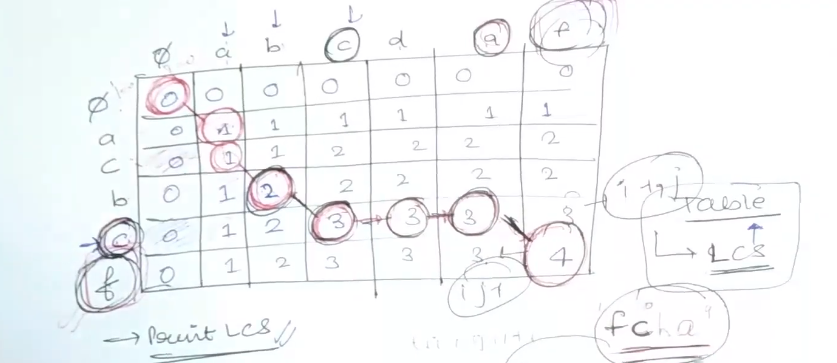 ∅ a b c d a f
∅ 0 0 0 0 0 0 0
a 0 1 1 1 1 1 1
c 0 1 1 2 2 2 2
b 0 1 2 2 2 2 2
c 0 1 2 3 3 3 3
f 0 1 2 3 3 3 4
Table
→ LCS
→ Print LCS //